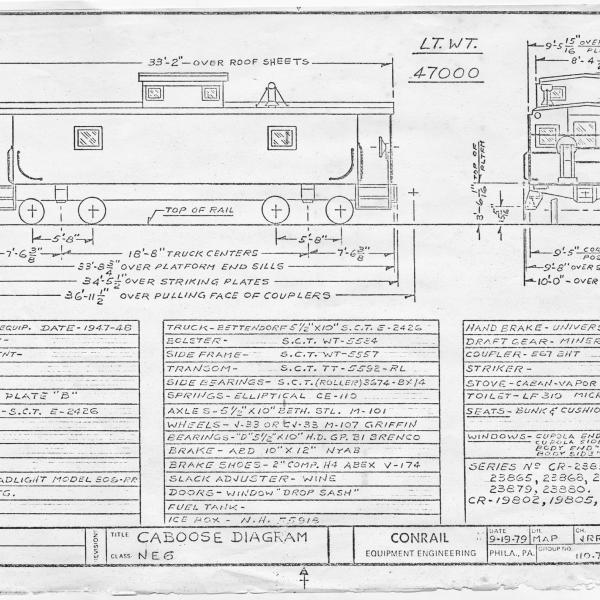 33'-2" OVER ROOF SHEETS
LT. WT.
47000
9'-5 15/16" OVER
8'-4
TOP OF RAIL
3'-6 1/16" TOP OF PLTFM
5'-8"
5'-8"
7'-6 3/8"
18'-8" TRUCK CENTERS
7'-6 3/8"
33'-8 3/4" OVER PLATFORM END SILLS
34'-5 1/2" OVER STRIKING PLATES
36'-11 1/2" OVER PULLING FACE OF COUPLERS
9'-5"
9'-8" OVER S
10'-0" OVER
EQUIP. DATE-1947-48
PLATE "B"
S.C.T. E-2426
TRUCK-BETTENDORF 5 1/2"X10" S.C.T. E-2426
BOLSTER- S.C.T. WT-5534
SIDE FRAME- S.C.T. WT-5557
TRANSOM- S.C.T. TT-5592-RL
SIDE BEARINGS- S.C.T.(ROLLER)3674-BX/4
SPRINGS-ELLIPTICAL CE-110
AXLES-5 1/2"X10" BETH. STL. M-101
WHEELS-J-33 OR CJ-33 M-107 GRIFFIN
BEARINGS-"D"5 1/2"X10" H.D. GP. B1 BRENCO
BRAKE-ABD 10"X12" NYAB
BRAKE SHOES-2"COMP. H4 ABEX V-174
SLACK ADJUSTER-WINE
DOORS-WINDOW "DROP SASH"
FUEL TANK-
ICE BOX- N.H. 75918
HEADLIGHT MODEL
HAND BRAKE-UNIVERS
DRAFT GEAR-MINER
COUPLER-E67 BHT
STRIKER-
STOVE-CABAN-VAPOR
TOILET-LF 310 MICR
SEATS-BUNK & CUSHIO
WINDOWS-CUPOLA END
CUPOLA SIDE
BODY END-
BODY SIDE
SERIES Nº CR-238
23865, 23868, 2
23879, 23880.
CR-19802, 19805,
REVISION
TITLE CABOOSE DIAGRAM
CLASS- NE6
CONRAIL
EQUIPMENT ENGINEERING
DATE 9-19-79
DR. MAP
CH. JRR
PHILA., PA.
GROUP NO.
110-7